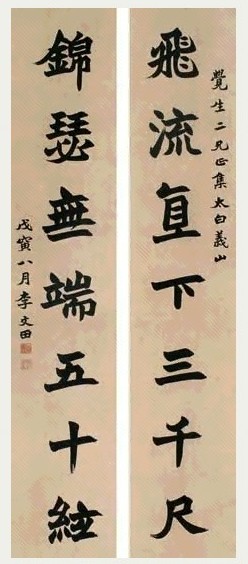 覺生二兄正集太白義山
飛流直下三千尺
錦瑟無端五十絃
戊寅八月李文田